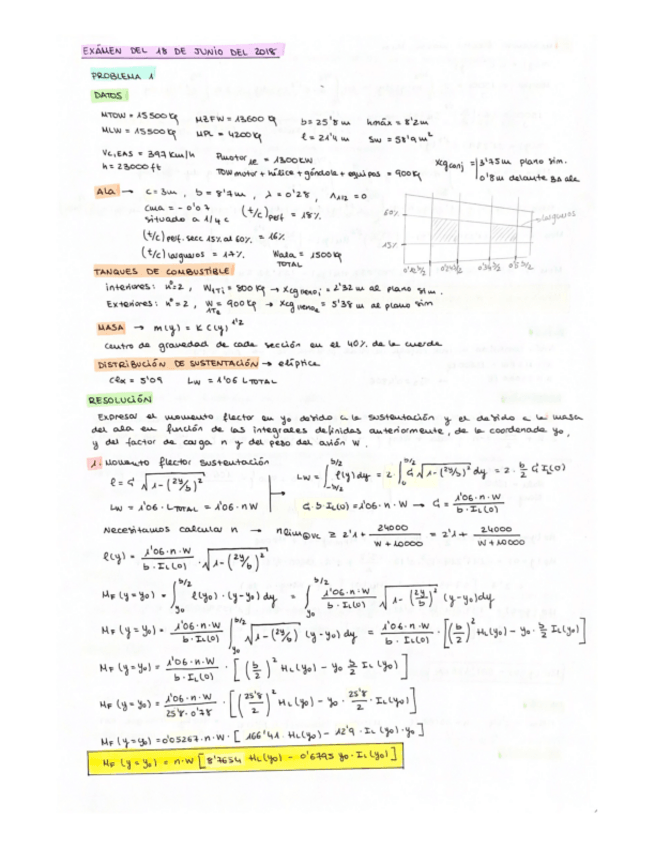 EXÁMEN DEL 18 DE JUNIO DEL 2018
PROBLEMA 1
DATOS
MTOW = 15500 kg MZFW = 13600 kg b = 25'8 m hmáx = 8'2 m
MLW = 15500 kg MPL = 4200 kg l = 21'4 m Sw = 58'9 m²
Vc,EAS = 397 km/h Pmotor = 1300 kW
h = 23000 ft TOW motor + hélice + góndola + equipos = 900 kg
xcg 3'75m plano sim.
0'8m delante BA ala
ALA → c = 3m, b = 8'7m, λ = 0'28, Λ1/2 = 0
cma = -0'07 (t/c)perf = 18%
situado a 1/4 c
(t/c) perf. secc 15% al 60%. = 16%
(t/c) largueros = 17%. Wala = 1500 kg
TOTAL
60%
15%
largueros
TANQUES DE COMBUSTIBLE
interiores: nº=2, = 800 kg → xcg = 2'32 m al plano sim.
Exteriores: nº=2, W = 900 kg → xcg = 5'38 m al plano sim
MASA → m(y) = K C(y)
Centro de gravedad de cada sección en el 40% de la cuerda
DISTRIBUCIÓN DE SUSTENTACIÓN → elíptica
Clα = 5'09 Lw = 1'06 LTOTAL
RESOLUCIÓN
Expresar el momento flector en yo debido a la sustentación y el debido a la masa
del ala en función de las integrales definidas anteriormente, de la coordenada yo,
y del factor de carga n y del peso del avión W.
1. Momento flector sustentación
l = G √1-(2y/b)²
Lw = ∫ l(y) dy = 2·∫ G √1-(2y/b)² dy = 2·b/2 G IL(0)
Lw = 1'06·LTOTAL = 1'06·nW
G·b·IL(0) = 1'06·n·W → G = 1'06·n·W / b·IL(0)
Necesitamos calcular n → nlim@Vc ≥ 2'1 + 24000 / W+10000 = 2'1 + 24000 / W+10000
l(y) = 1'06·n·W / b·IL(0) · √1-(2y/b)²
MF (y=yo) = ∫ l(yo)·(y-yo) dy = ∫ 1'06·n·W / b·IL(0) √1-(2y/b)² (y-yo) dy
MF (y=yo) = 1'06·n·W / b·IL(0) ∫ √1-(2y/b)² (y-yo) dy = 1'06·n·W / b·IL(0) · [(b/2)² HL(yo) - yo·b/2 IL(yo)]
MF (y=yo) = 1'06·n·W / b·IL(0) · [(b/2)² HL(yo) - yo b/2 IL(yo)]
MF (y=yo) = 1'06·n·W / 25'8·0'78 · [(25'8/2)² HL(yo) - yo·25'8/2·IL(yo)]
MF (y=yo) = 0'05267·n·W·[166'41·HL(yo) - 12'9·IL(yo)·yo]
MF (y=yo) = n·W [8'7654 HL(yo) - 0'6795 yo·IL(yo)]